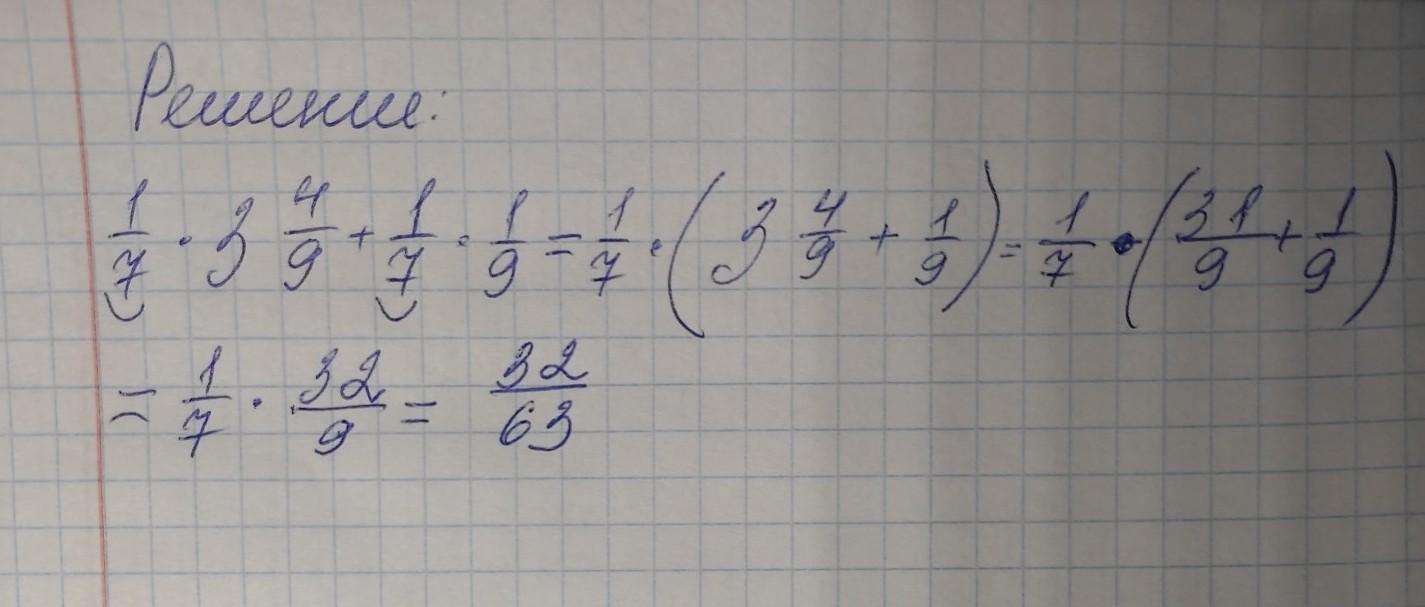 Решение:
1/7 · 3 4/9 + 1/7 · 1/9 = 1/7 · (3 4/9 + 1/9) = 1/7 · (31/9 + 1/9)
= 1/7 · 32/9 = 32/63